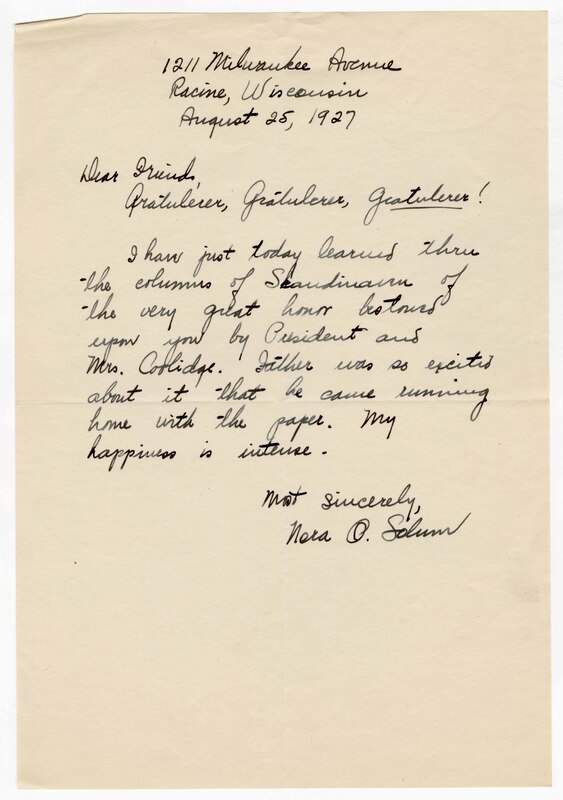 1211 Milwaukee Avenue
Racine, Wisconsin
August 25, 1927
Dear Friends,
Gratulerer, Gratulerer, Gratulerer!
I have just today learned thru
the columns of Skandinaven of
the very great honor bestowed
upon you by President and
Mrs. Coolidge. Father was so excited
about it that he came running
home with the paper. My
happiness is intense.
Most sincerely,
Nora O. Solum